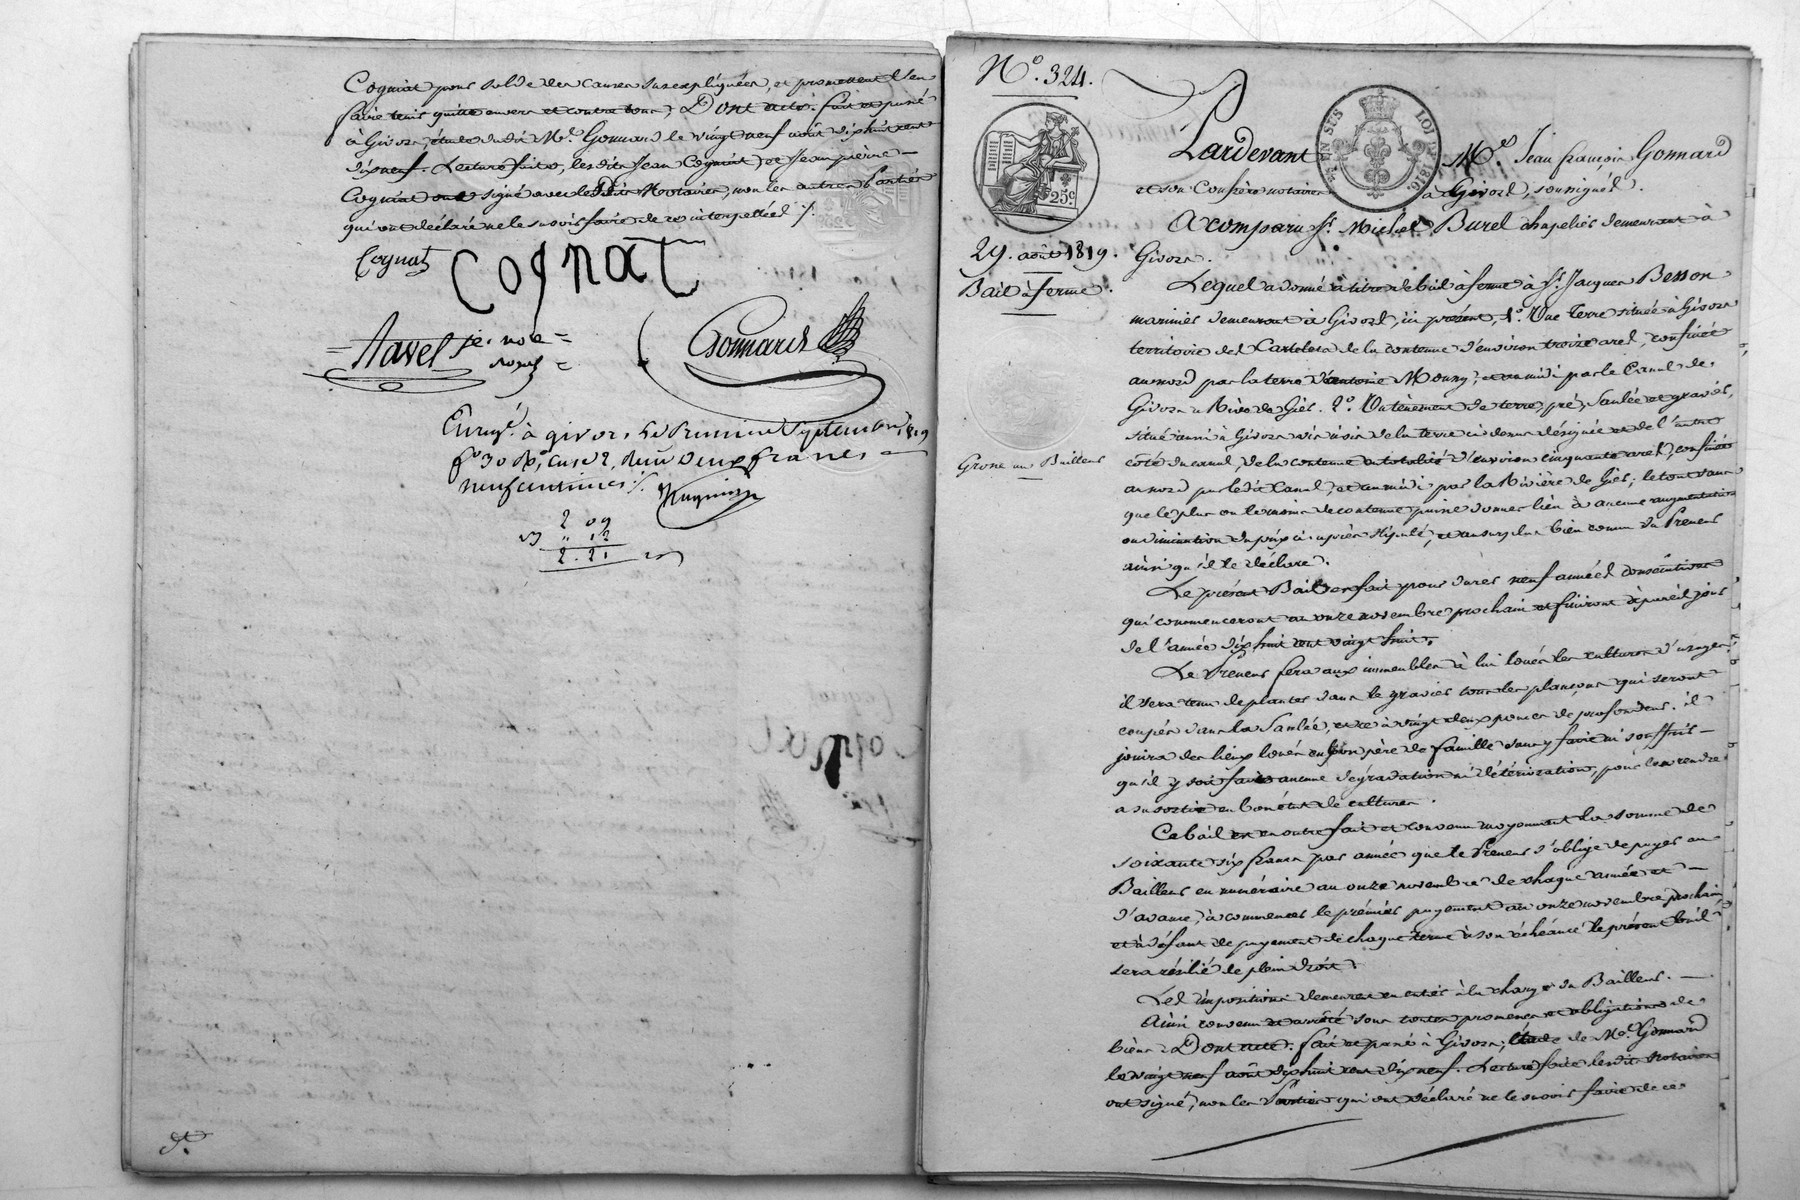 Cogniat pour solde des causes susexpliquées, et promettent l'en
faire tenir quitte envers et contre tous; Dont acte. fait et passé
à Givors, étude dudit Me. Gonnard le vingt neuf août dix huit cent
dix neuf. Lecture faite, lesdits Jean Cogniat, et Jean pierre
Cogniat ont signé avec lesdits Notaires, non les autres Parties
qui ont déclaré ne le savoir faire de ce interpellées ./.
Cognat Cognat
Navel Gonnard
Enregé. à givors, le Premier Septembre 1819
fo. 30 Ro. Case 2, Reçu deux francs
neuf centimes ./.
2 09
" 12
2. 21
No. 324.
EN SUS LOI DE 1816
Pardevant Me. Jean françois Gonnard
et son Confrère notaires à Givors, soussignés.
25c
A comparu Sr. Michel Burel chapelier demeurant à
29. août 1819. Givors.
Bail à ferme.
Lequel a donné à titre de bail à ferme à Sr. Jacques Besson
marinier demeurant à Givors, ici présent, 1o. Une Terre située à Givors
territoire des Cartelets de la contenue d'environ treize ares, confinée
au nord par la terre d'antoine Mouny, et au midi par le Canal de
Givors à Rive de Gier. 2o. Un tènement de terre, pré, Saulée et gravier,
situé aussi à Givors vis à vis de la terre ci dessus désignée et de l'autre
côté du canal, de la contenue en totalité d'environ cinquante ares, confiné
Grosse au Bailleur
au nord par ledit Canal, et au midi par la Rivière de Gier; le tout sans
que le plus ou le moins de contenue puisse donner lieu à aucune augmentation
ou diminution du prix ci-après stipulé, et au surplus bien connu du Preneur
ainsi qu'il le déclare.
Le présent Bail est fait pour durer neuf années consécutives
qui commenceront au onze novembre prochain et finiront à pareil jour
de l'année dix huit cent vingt huit.
Le Preneur fera aux immeubles à lui loués les cultures d'usage,
il sera tenu de planter dans le gravier tous les plançons qui seront
coupés dans la Saulée, et ce à vingt deux pouces de profondeur. il
jouira des lieux loués en bon père de famille sans y faire ni souffrir
qu'il y soit fait aucune dégradation ni détérioration, pour les rendre
a sa sortie en bon état de culture.
Ce bail est en outre fait et convenu moyennant la somme de
soixante six francs par année que le Preneur s'oblige de payer au
Bailleur en numéraire au onze novembre de chaque année et
d'avance, à commencer le premier payement au onze novembre prochain,
et à défaut de payement de chaque terme à son échéance le présent bail
sera résilié de plein droit.
Les impositions demeurent en entier à la charge du Bailleur.
Ainsi convenu et arrêté sous toutes promesses et obligations de
biens. Dont acte. fait et passé à Givors, étude de Me. Gonnard
le vingt neuf août dix huit cent dix neuf. Lecture faite lesdits notaires
ont signé, non les Parties qui ont déclaré ne le savoir faire de ce